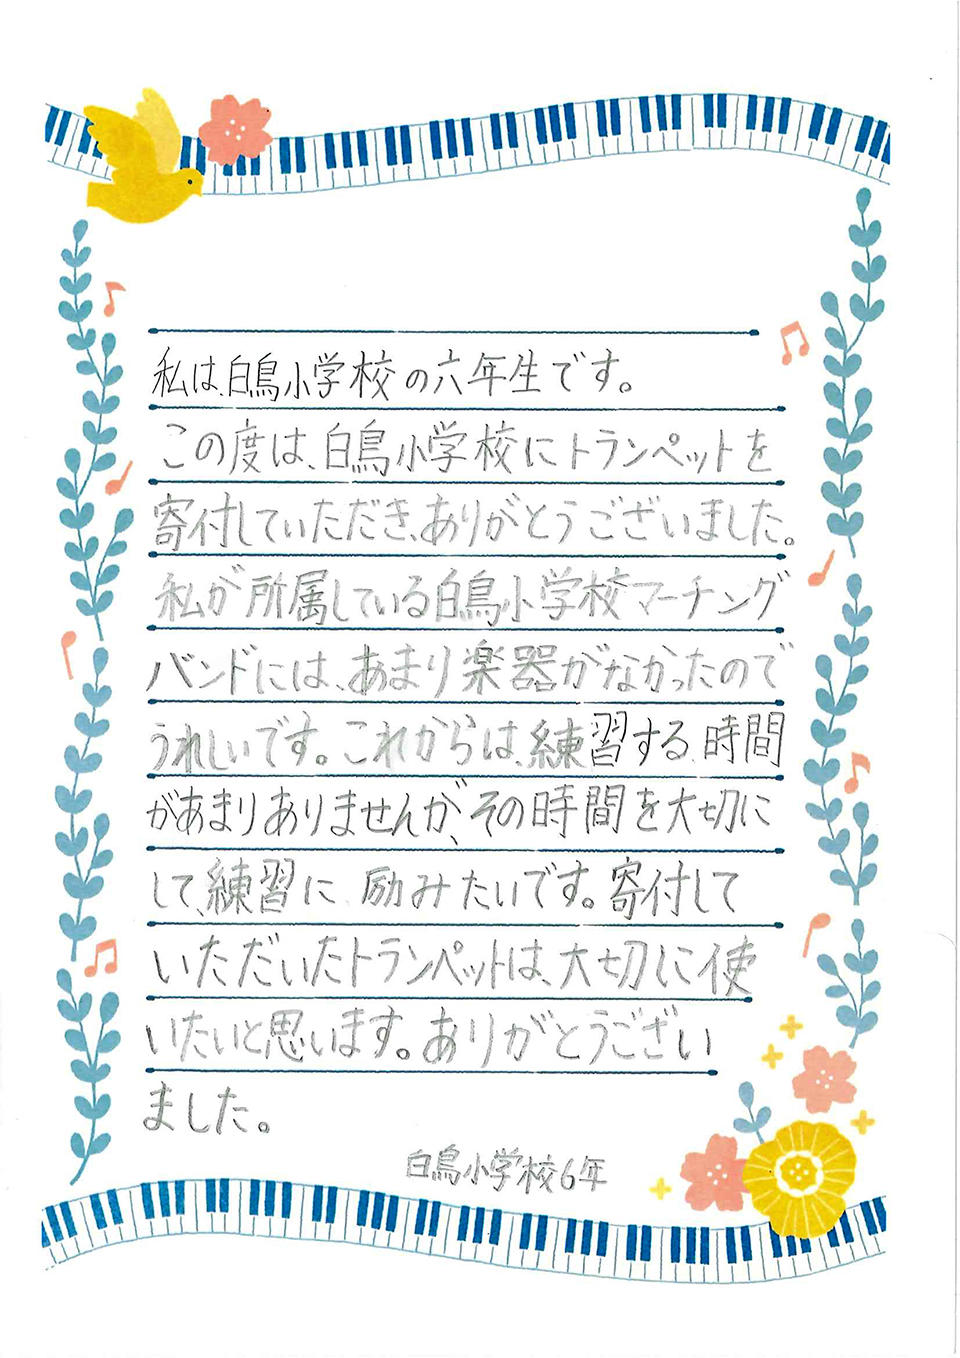 私は、白鳥小学校の六年生です。
この度は、白鳥小学校にトランペットを
寄付していただき、ありがとうございました。
私が所属している白鳥小学校マーチング
バンドには、あまり楽器がなかったので
うれしいです。これからは、練習する、時間
があまりありませんが、その時間を大切に
して、練習に、励みたいです。寄付して
いただいたトランペットは、大切に使
いたいと思います。ありがとうござい
ました。
白鳥小学校6年